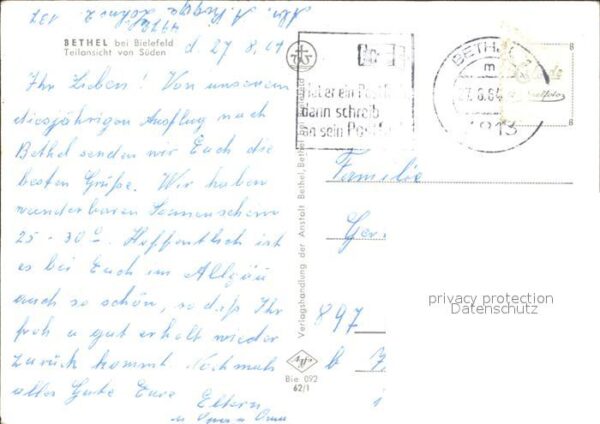 BETHEL bei Bielefeld
Teilansicht von Süden
d. 27. 8. 64
Ihr Lieben! Von unserem
diesjährigen Ausflug nach
Bethel senden wir Euch die
besten Grüße. Wir haben
wunderbaren Sonnenschein
25 - 30°. Hoffentlich ist
es bei Euch im Allgäu
auch so schön, so daß Ihr
froh u gut erholt wieder
zurück kommt. Nochmals
alles Gute Eure Eltern
u Oma
Verlagshandlung der Anstalt Bethel, Bethel bei Bielefeld
Bie 092
62/1
Hat er ein Postfach
dann schreib
an sein Postfach
BETHEL
m
27.8.64
4813
Familie
Ger
897
privacy protection
Datenschutz